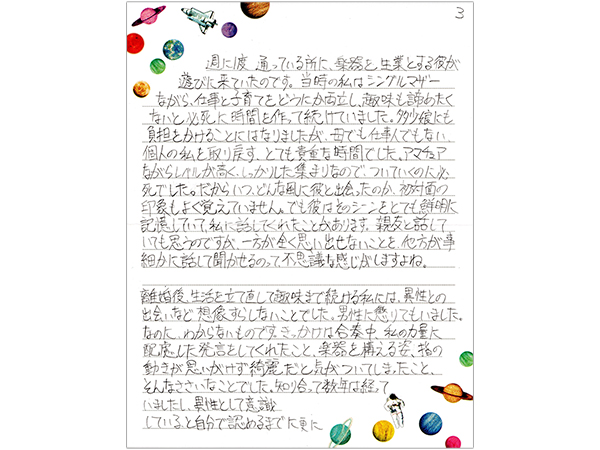 3
週に1度 通っている所に、楽器を生業とする彼が
遊びに来ていたのです。当時の私はシングルマザー
ながら、仕事と子育てをどうにか両立し、趣味も諦めたく
ないと必死に時間を作って続けていました。多少彼にも
負担をかけることにはなりましたが、母でも仕事人でもない、
個人の私を取り戻す、とても貴重な時間でした。アマチュア
ながらレベルが高く、しっかりした集まりなので、ついていくのに必
死でした。だからいつ、どんな風に彼と出会ったのか、初対面の
印象もよく覚えていません。でも彼はそのシーンをとても鮮明に
記憶していて、私に話してくれたことがあります。親友と話して
いても思うのですが、一方が全く思い出せないことを、他方が事
細かに話して聞かせるのって、不思議な感じがしますよね。
離婚後、生活を立て直して趣味まで続ける私には、異性との
出会いなど想像すらしないことでした。男性に懲りてもいました。
なのに、わからないものです。きっかけは合奏中、私の力量に
配慮した発言をしてくれたこと、楽器を構える姿、指の
動きが思いがけず綺麗だと気がついてしまったこと、
そんなささいなことでした。知り合って数年は経って
いましたし、異性として意識
している、と自分で認めるまでに更に